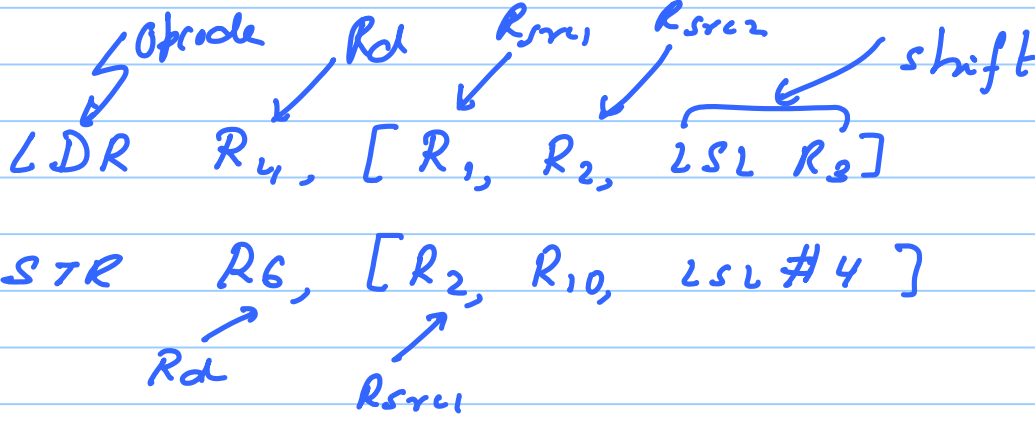 Opcode Rd Rsrc1 Rsrc2 shift
LDR R4, [R1, R2, LSL R3]
STR R6, [R2, R10, LSL #4]
Rd Rsrc1